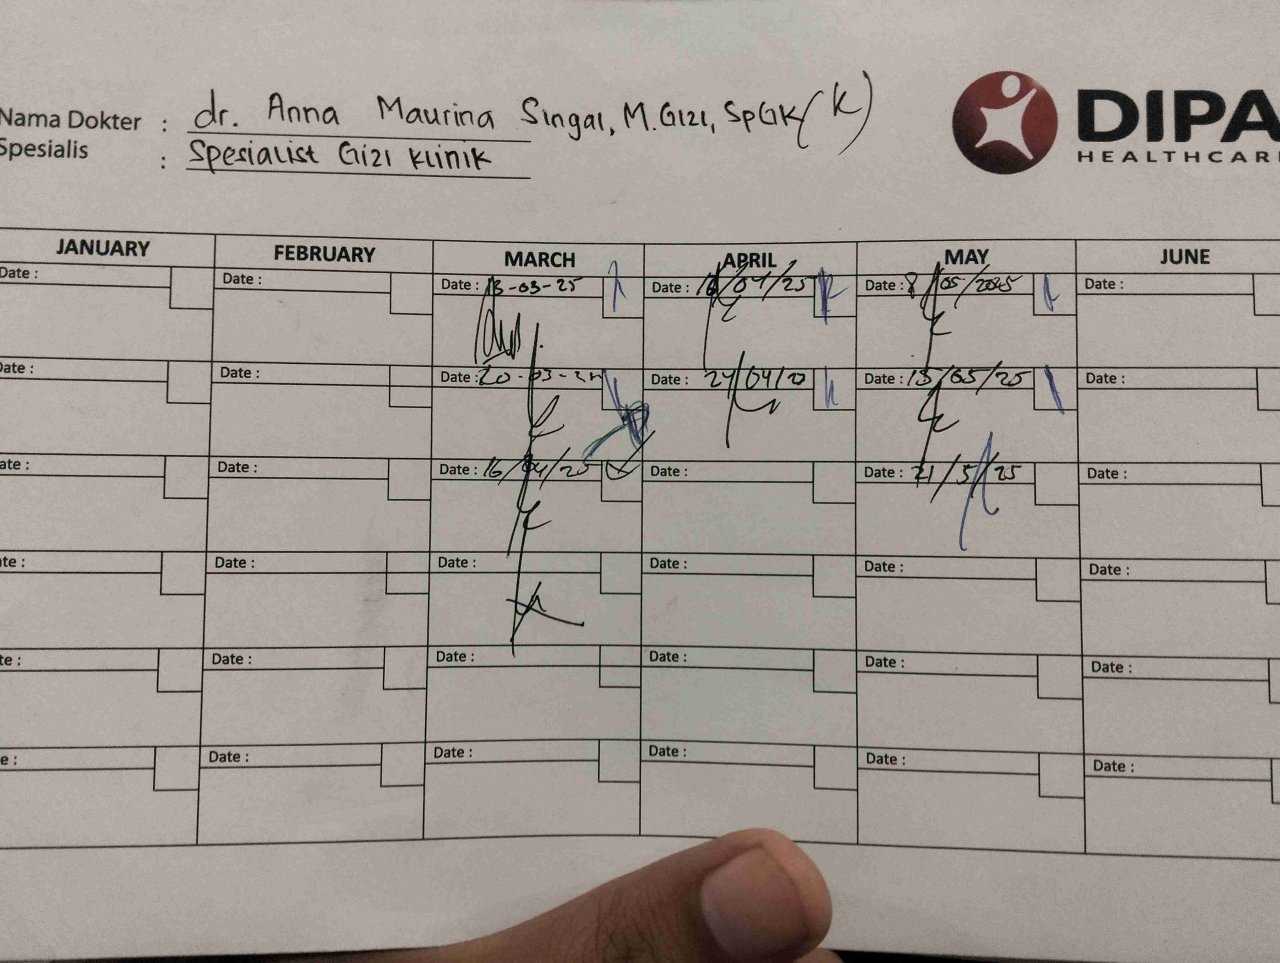 Nama Dokter : dr. Anna Maurina Singal, M.Gizi, SpGK(K)
Spesialis : Spesialist Gizi Klinik
DIPA
HEALTHCARE
JANUARY FEBRUARY MARCH APRIL MAY JUNE
Date : Date : Date : 13-03-25 Date : 16/04/25 Date : 8/05/2025 Date :
Date : Date : Date : 20-03-25 Date : 24/04/20 Date : 15/05/25 Date :
Date : Date : Date : 16/04/25 Date : Date : 21/5/25 Date :
Date : Date : Date : Date : Date : Date :
Date : Date : Date : Date : Date : Date :
Date : Date : Date : Date : Date : Date :